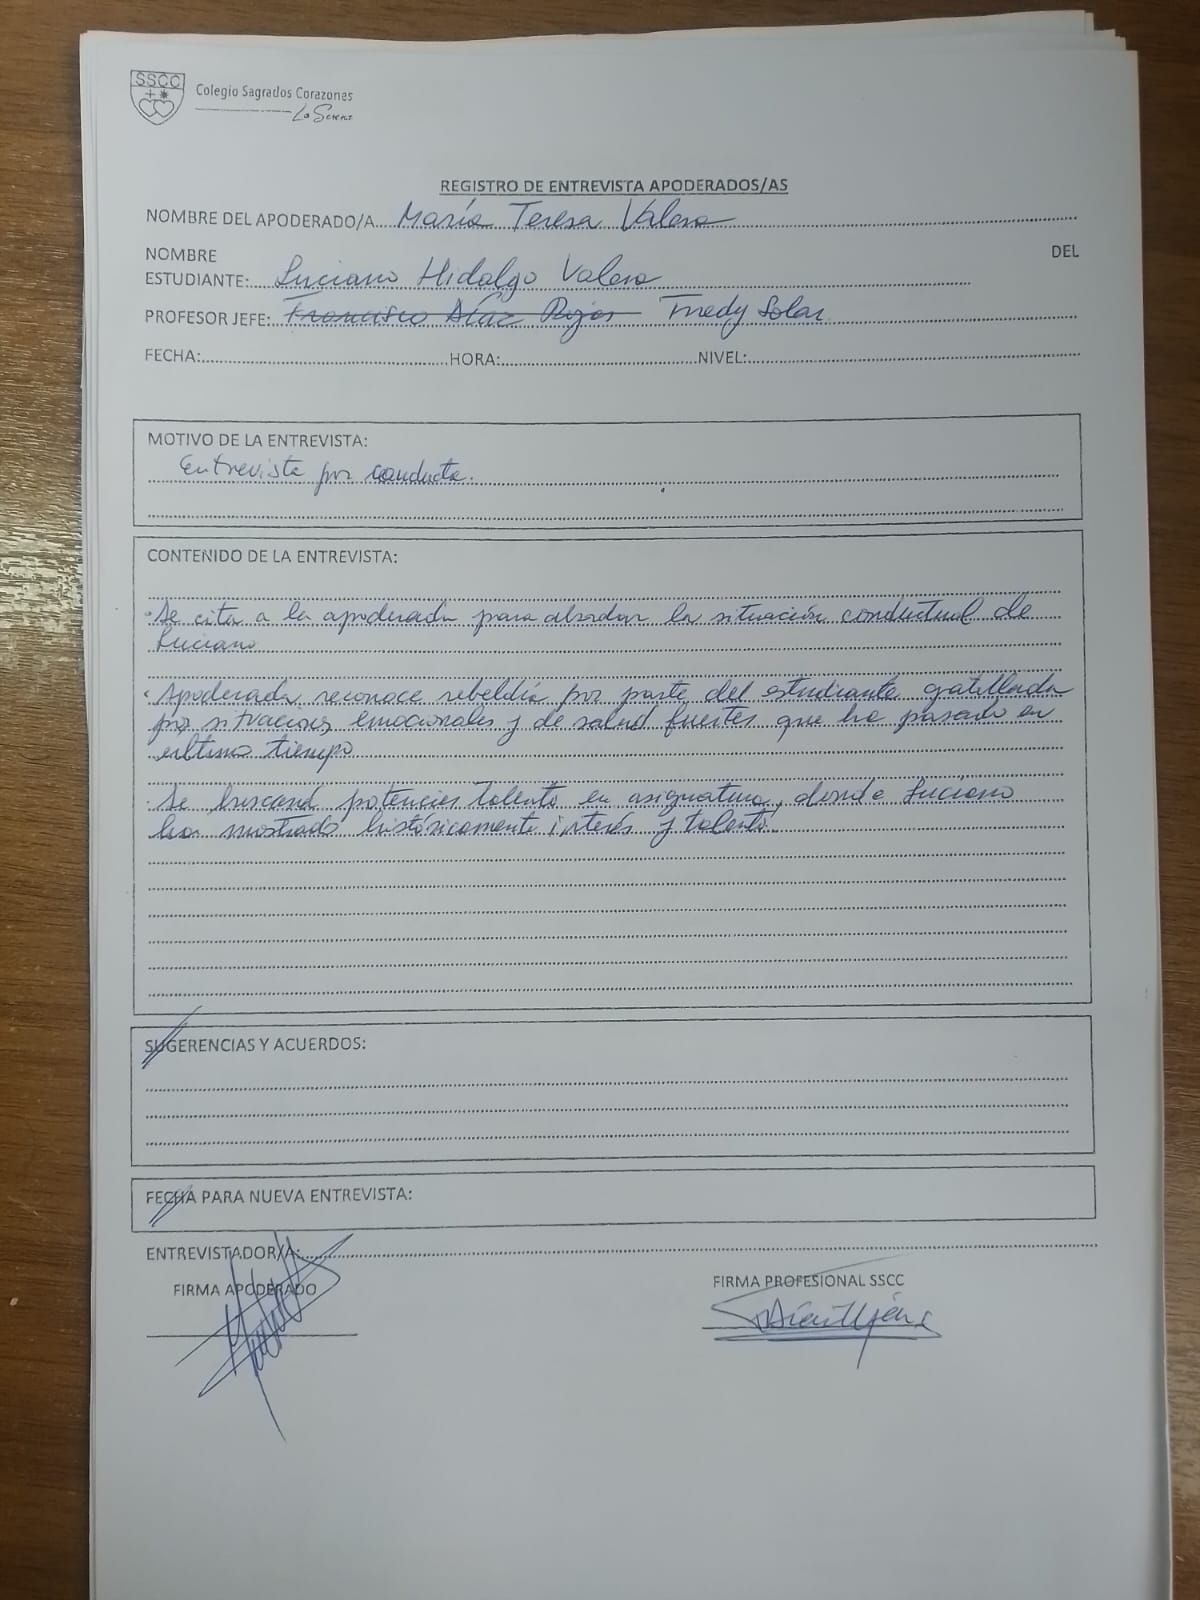 SSCC
Colegio Sagrados Corazones
La Serena
REGISTRO DE ENTREVISTA APODERADOS/AS
NOMBRE DEL APODERADO/A María Teresa Valero
NOMBRE DEL
ESTUDIANTE: Luciano Hidalgo Valero
PROFESOR JEFE: Francisco Díaz Rojas Fredy Solar
FECHA: HORA: NIVEL:
MOTIVO DE LA ENTREVISTA:
Entrevista por conducta.
CONTENIDO DE LA ENTREVISTA:
· Se cita a la apoderada para abordar la situación conductual de
Luciano
· Apoderada reconoce rebeldía por parte del estudiante gatillada
por situaciones emocionales y de salud fuertes que ha pasado en
último tiempo
· Se buscará potenciar talento en asignatura, donde Luciano
ha mostrado históricamente interés y talento.
SUGERENCIAS Y ACUERDOS:
FECHA PARA NUEVA ENTREVISTA:
ENTREVISTADOR/A:
FIRMA APODERADO
FIRMA PROFESIONAL SSCC